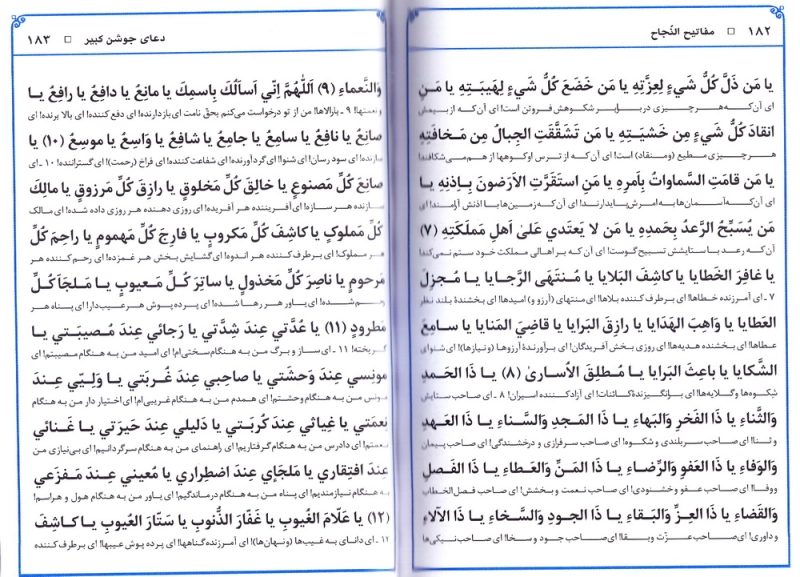 ۱۸۲ □ مفاتیح النّجاح
يا مَن ذَلَّ كُلُّ شَيءٍ لِعِزَّتِهِ يا مَن خَضَعَ كُلُّ شَيءٍ لِهَيبَتِهِ يا مَنِ
ای آن‌که هرچیزی در برابر شکوهش فروتن است! ای آن‌که از بیمش
انقادَ كُلُّ شَيءٍ مِن خَشيَتِهِ يا مَن تَشَقَّقَتِ الجِبالُ مِن مَخافَتِهِ
هرچیزی مطیع (ومنقاد) است! ای آن‌که از ترس اوکوه‌ها از هم می‌شکافند!
يا مَن قامَتِ السَّماواتُ بِأَمرِهِ يا مَنِ استَقَرَّتِ الأَرَضونَ بِإِذنِهِ يا
ای آن‌که آسمان‌ها به امرش پایدارند! ای آن‌که زمین‌ها با اذنش آرامند! ای
مَن يُسَبِّحُ الرَّعدُ بِحَمدِهِ يا مَن لا يَعتَدي عَلىٰ أَهلِ مَملَكَتِهِ (۷)
آن‌که رعد با ستایشش تسبیح گوست! ای آن‌که بر اهالی مملکت خود ستم نمی‌کند!
يا غافِرَ الخَطايا يا كاشِفَ البَلايا يا مُنتَهَى الرَّجايا يا مُجزِلَ
۷ ـ ای آمرزنده خطاها! ای برطرف کننده بلاها! ای منتهای (آرزو و) امیدها! ای بخشندهٔ بلند نظر
العَطايا يا واهِبَ الهَدايا يا رازِقَ البَرايا يا قاضِيَ المَنايا يا سامِعَ
عطاها! ای بخشنده هدیه‌ها! ای روزی بخش آفریدگان! ای برآورندهٔ آرزوها (ونیازها)! ای شنوای
الشَّكايا يا باعِثَ البَرايا يا مُطلِقَ الأُسارىٰ (۸) يا ذَا الحَمدِ
شکوه‌ها وگلایه‌ها! ای برانگیزندهٔ کائنات! ای آزادکننده اسیران! ۸ ـ ای صاحب ستایش
وَالثَّناءِ يا ذَا الفَخرِ وَالبَهاءِ يا ذَا المَجدِ وَالسَّناءِ يا ذَا العَهدِ
وثنا! ای صاحب سربلندی و شکوه! ای صاحب سرفرازی و درخشندگی! ای صاحب پیمان
وَالوَفاءِ يا ذَا العَفوِ وَالرِّضاءِ يا ذَا المَنِّ وَالعَطاءِ يا ذَا الفَصلِ
ووفا! ای صاحب عفو و خشنودی! ای صاحب نعمت و بخشش! ای صاحب فصل‌الخطاب
وَالقَضاءِ يا ذَا العِزِّ وَالبَقاءِ يا ذَا الجودِ وَالسَّخاءِ يا ذَا الآلاءِ
و داوری! ای صاحب عزّت و بقا! ای صاحب جود و سخا! ای صاحب نیکی‌ها
دعای جوشن کبیر □ ۱۸۳
وَالنَّعماءِ (۹) اَللّٰهُمَّ إِنّي أَسأَلُكَ بِاسمِكَ يا مانِعُ يا دافِعُ يا رافِعُ يا
ونعمتها! ۹ ـ بارالاها! من از تو درخواست می‌کنم بحقّ نامت ای بازدارنده! ای دفع کننده! ای بالا برنده! ای
صانِعُ يا نافِعُ يا سامِعُ يا جامِعُ يا شافِعُ يا واسِعُ يا موسِعُ (۱۰) يا
سازنده! ای سود رسان! ای شنوا! ای گردآورنده! ای شفاعت کننده! ای فراخ (رحمت)! ای گستراننده! ۱۰ ـ ای
صانِعَ كُلِّ مَصنوعٍ يا خالِقَ كُلِّ مَخلوقٍ يا رازِقَ كُلِّ مَرزوقٍ يا مالِكَ
سازنده هر سازه! ای آفریننده هر آفریده! ای روزی دهنده هر روزی داده شده! ای مالک
كُلِّ مَملوكٍ يا كاشِفَ كُلِّ مَكروبٍ يا فارِجَ كُلِّ مَهمومٍ يا راحِمَ كُلِّ
هر مملوک! ای برطرف کننده هر اندوه! ای گشایش بخش هر غمزده! ای رحم کننده هر
مَرحومٍ يا ناصِرَ كُلِّ مَخذولٍ يا ساتِرَ كُلِّ مَعيوبٍ يا مَلجَأَ كُلِّ
رحم‌شده! ای یاور هر رها شده! ای پرده پوش هرعیب‌دار! ای پناه هر
مَطرودٍ (۱۱) يا عُدَّتي عِندَ شِدَّتي يا رَجائي عِندَ مُصيبَتي يا
گریخته! ۱۱ ـ ای ساز و برگ من به هنگام سختی‌ام! ای امید من به هنگام مصیبتم! ای
مونِسي عِندَ وَحشَتي يا صاحِبي عِندَ غُربَتي يا وَلِيّي عِندَ
مونس من به هنگام وحشتم! ای همدم من به هنگام غریبی‌ام! ای اختیار دار من به هنگام
نِعمَتي يا غِياثي عِندَ كُربَتي يا دَليلي عِندَ حَيرَتي يا غَنائي
نعمتم! ای دادرس من به هنگام گرفتاریم! ای راهنمای من به هنگام سرگردانیم! ای بی‌نیازی من
عِندَ افتِقاري يا مَلجَاٌي عِندَ اضطِراري يا مُعيني عِندَ مَفزَعي
به هنگام نیازمندیم! ای پناه من به هنگام درماندگیم! ای یاور من به هنگام هول و هراسم!
(۱۲) يا عَلّامَ الغُيوبِ يا غَفّارَ الذُّنوبِ يا سَتّارَ العُيوبِ يا كاشِفَ
۱۲ ـ ای دانای به غیب‌ها (ونهان‌ها)! ای آمرزنده گناهها! ای پرده پوش عیبها! ای برطرف کننده